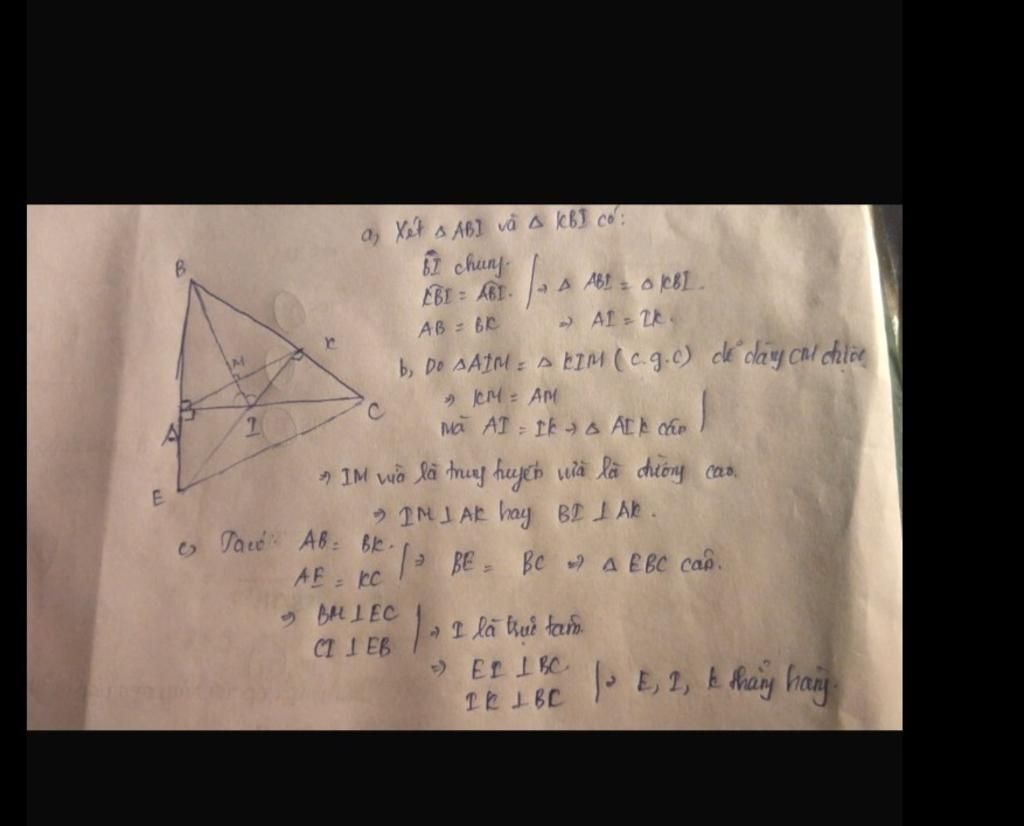 a, Xét △ ABI và △ KBI có:
B
BI chung.
KBI = ABI. ⇒ △ ABI = △ KBI.
AB = BK ⇒ AI = IK.
K
M
b, Do △AIM = △ KIM (c.g.c) dễ dàng CM được
⇒ KM = AM
C
I
A
mà AI = IK → △ AIK cân
⇒ IM vừa là trung tuyến vừa là đường cao.
E
⇒ IM ⊥ AK hay BI ⊥ AK.
c, Ta có: AB = BK.
AE = KC ⇒ BE = BC ⇒ △ EBC cân.
⇒ BM ⊥ EC
CI ⊥ EB ⇒ I là trực tâm.
⇒ EI ⊥ BC.
IK ⊥ BC ⇒ E, I, K thẳng hàng.